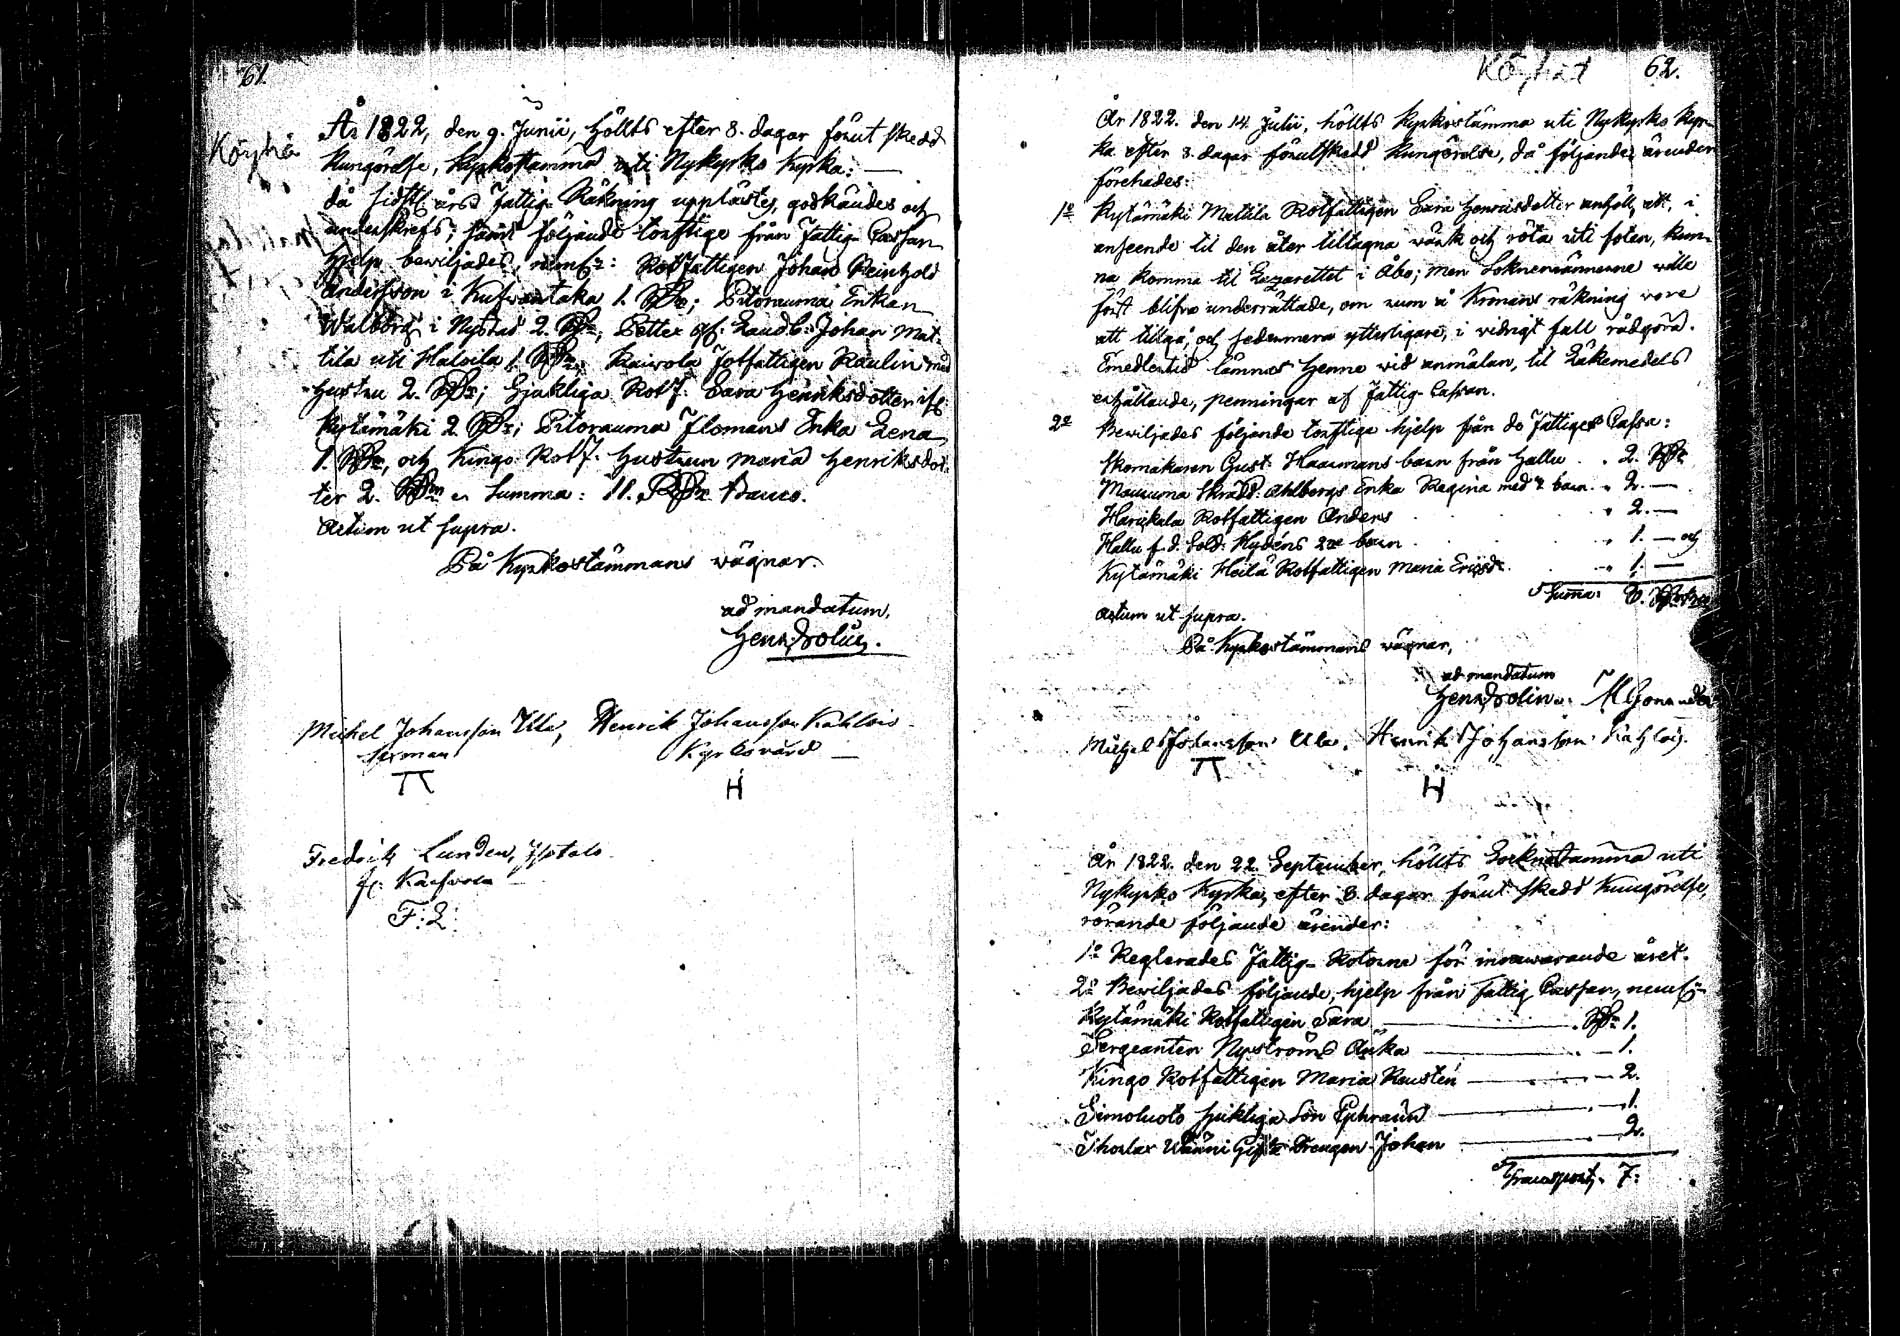 61.
Köyhä
År 1822, den 9. Junii, höllts efter 8. dagar förut skedd
Kungörelse, Kyrkostämma uti Nykyrko Kyrka:
då sidstl. års Fattig-Räkning upplästes, godkändes och
underskrefs; samt följande torftige från Fattig-Cassan
hjelp beviljades, neml:r: Rotfattigen Johan Reinhold
Andersson i Kufvantaka 1. RR; Pitorauma Enkan
Walborg i Nystad 2. RR; Petter och Johan Mat-
tila uti Haloila 1. RR; Kaivola Rotfattigen Raulin med
hustru 2. RR; Sjukliga Rotf. Sara Henriksdotter ifr.
Kytämäki 2. RR; Pitorauma Flomans Enka Lena
1. RR, och Kingo Rotf. hustrun Maria Henriksdot-
ter 2. RR Summa: 11. RR Banco.
Actum ut supra.
På Kyrkostämmans vägnar.
ad mandatum,
Henr. Polin.
Michel Johansson Ula, Henrik Johansson Kahlois
Kyrkovärd
H
Fredrik Lunden,
fr:
F: L:
Köyhät 62.
År 1822. den 14. Julii, höllts Kyrkostämma uti Nykyrko Kyr-
ka efter 8. dagar förutskedd Kungörelse, då följande ärender
förehades:
1o Kytämäki Matila Rotfattigen Sara Henricsdotter anhöll, att, i
anseende til den åter tiltagna värk och röta uti foten, kun-
na komma til Lazarettet i Åbo; men Soknemännerne ville
först blifva underrättade, om rum å Kronans räkning vore
att tillgå, och sedermera ytterligare, i vidrigt fall rådgöra.
Emedlertid lämnas henne vid anmälan, til Läkemedels
erhållande, penningar af Fattig-Cassan.
2o Beviljades följande torftige hjelp från de Fattiges Cassa:
Skomakaren Gust. Haarmans barn från Hallu . . 2. RR
Skrädd. Ahlbergs Enka Regina med 2 barn . 2. —
Harikkala Rotfattigen Anders . 2. —
Hallu f.d. Sold. Hydéns barn . 1. — och
Kytämäki Heilä Rotfattigen Maria Ericsdr . . 1. —
Summa: 8. RR
Actum ut supra.
På Kyrkostämmans vägnar,
ad mandatum
Henr. Polin.
Michel Johansson Ula. Henrik Johansson Kahlois.
H
År 1822. den 22. September, höllts Sockenstämma uti
Nykyrko Kyrka, efter 8. dagar förut skedd Kungörelse,
rörande följande ärender:
1o Reglerades Fattig-Rotorna för innevarande året.
2o Beviljades följande, hjelp från Fattig Cassan, neml:n
Kytämäki Rotfattigen Sara — RR 1.
Sergeanten Nyströms Änka — 1.
Kingo Rotfattigen Maria Reusten — 2.
Simoluoto sjukliga Son Ephraim — 1.
Drengen Johan — 2.
Transport. 7: